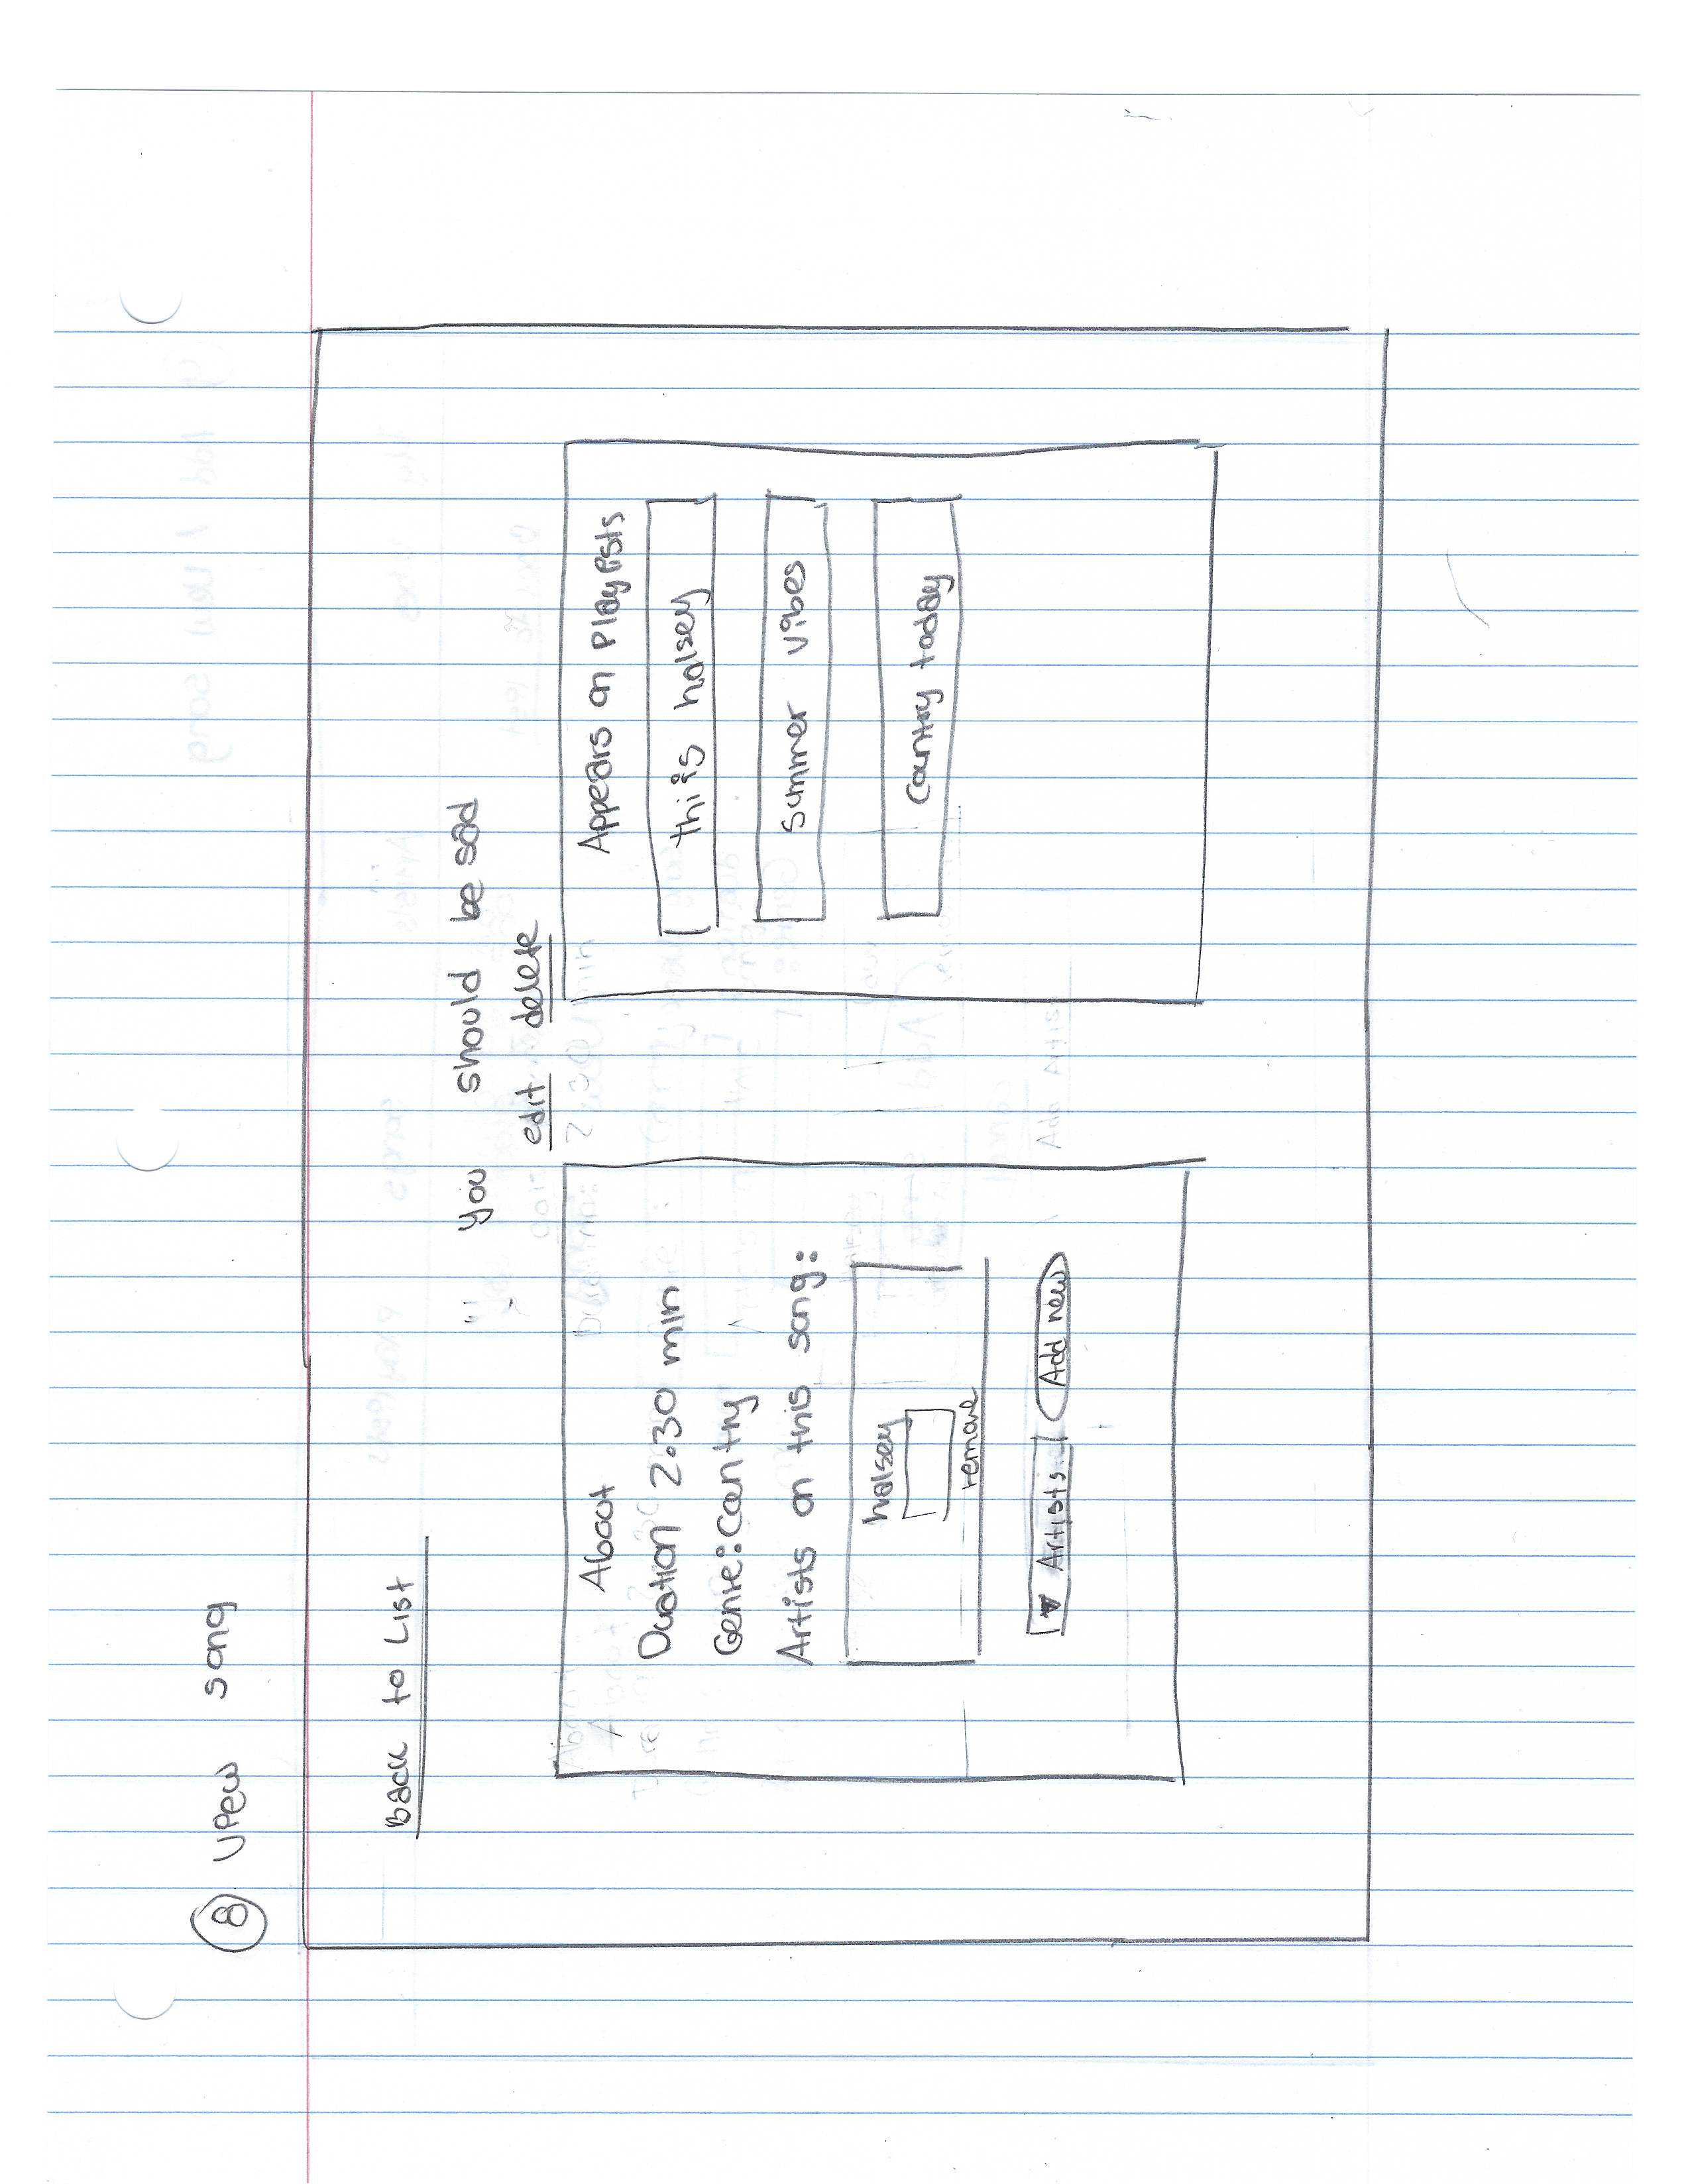 8 View song
Back to List
you should be sad
edit delete
About
Duation 2:30 min
Genre: Country
Artists on this song:
halsey
remove
▼ Artists
Add new
Appears on Playlists
this halsey
summer vibes
Country today